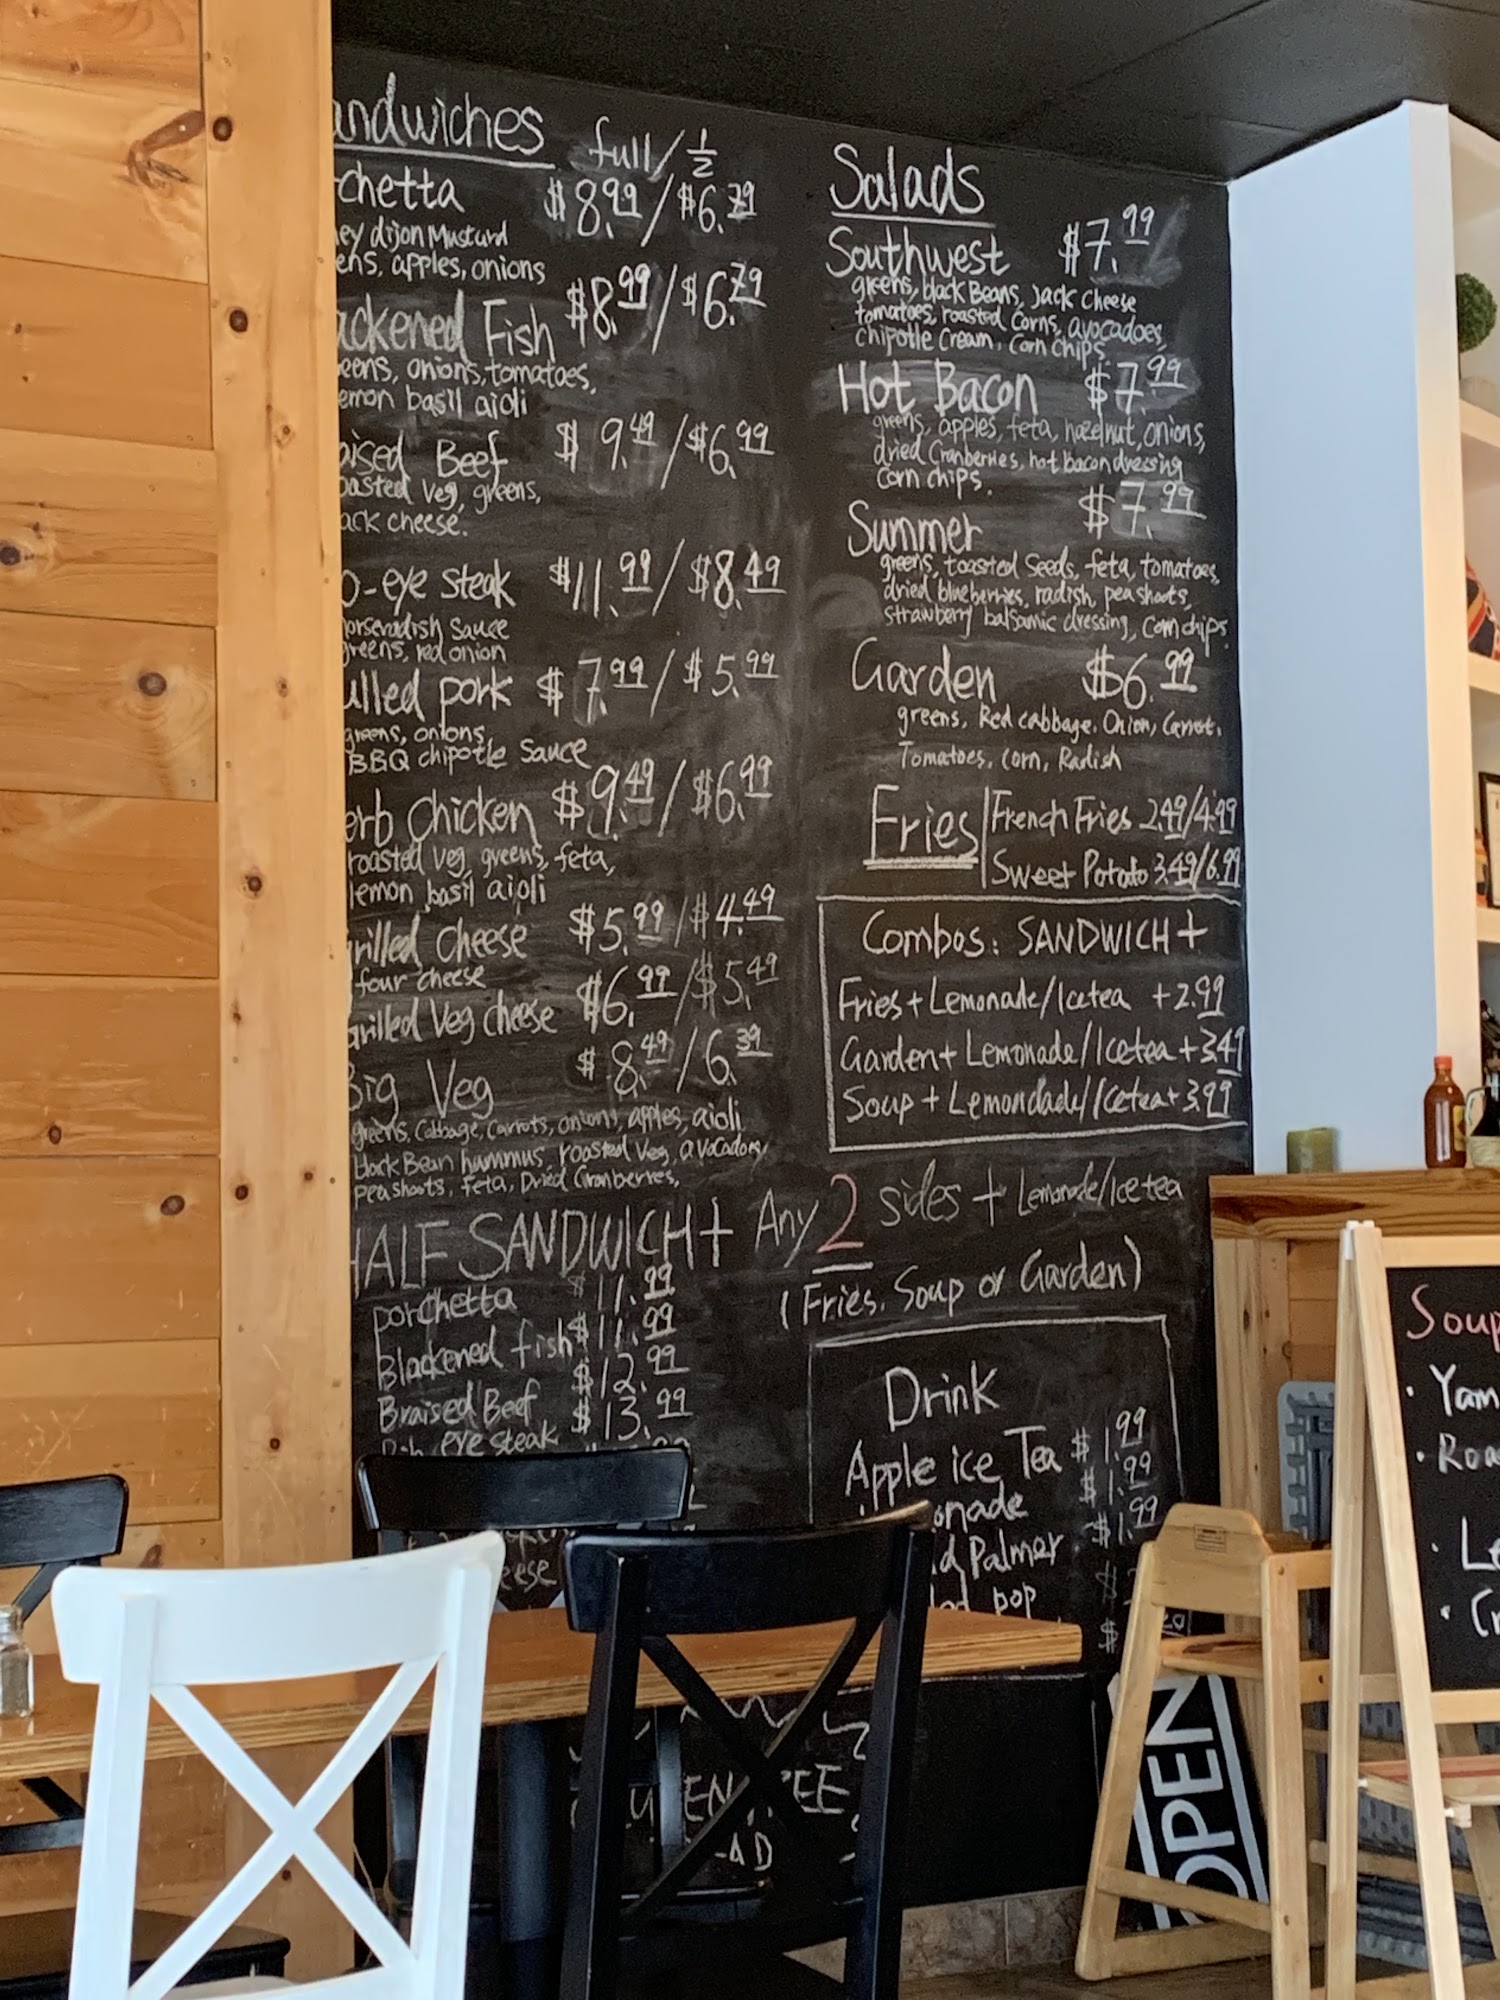 andwiches full/½
chetta $8.99/$6.79
ey dijon Mustard
ens, apples, onions
ackened Fish $8.99/$6.79
eens, onions, tomatoes,
emon basil aioli
aised Beef $9.49/$6.99
oasted veg, greens,
ack cheese.
o-eye steak $11.99/$8.49
orseradish sauce
greens, red onion
ulled pork $7.99/$5.99
greens, onions
BBQ chipotle sauce
erb chicken $9.49/$6.99
roasted veg, greens, feta,
lemon basil aioli
rilled cheese $5.99/$4.49
four cheese
rilled Veg cheese $6.99/$5.49
Big Veg $8.49/6.39
greens, Cabbage, Carrots, onions, apples, aioli
black Bean hummus, roasted veg, avocadoes,
peashoots, feta, Dried Cranberries,
HALF SANDWICH + Any 2 sides + Lemonade/Icetea
(Fries, Soup or Garden)
porchetta $11.99
Blackened fish $11.99
Braised Beef $12.99
eye steak $13.99
eese
Salads
Southwest $7.99
greens, black Beans, Jack cheese
tomatoes, roasted corns, avocadoes,
chipotle cream, corn chips
Hot Bacon $7.99
greens, apples, feta, hazelnut, onions,
dried Cranberries, hot bacon dressing
corn chips.
Summer $7.99
greens, toasted seeds, feta, tomatoes,
dried blueberries, radish, peashoots,
strawberry balsamic dressing, corn chips.
Garden $6.99
greens, Red cabbage, Onion, Carrot,
Tomatoes, corn, Radish
Fries
French Fries 2.49/4.99
Sweet Potato 3.49/6.99
Combos: SANDWICH +
Fries + Lemonade/Icetea +2.99
Garden + Lemonade/Icetea +3.49
Soup + Lemondade/Icetea +3.99
Drink
Apple ice Tea $1.99
onade $1.99
d Palmer $1.99
pop $
$
EE
AD
OPEN
Soup
· Yam
· Roa
· Le
· Cr